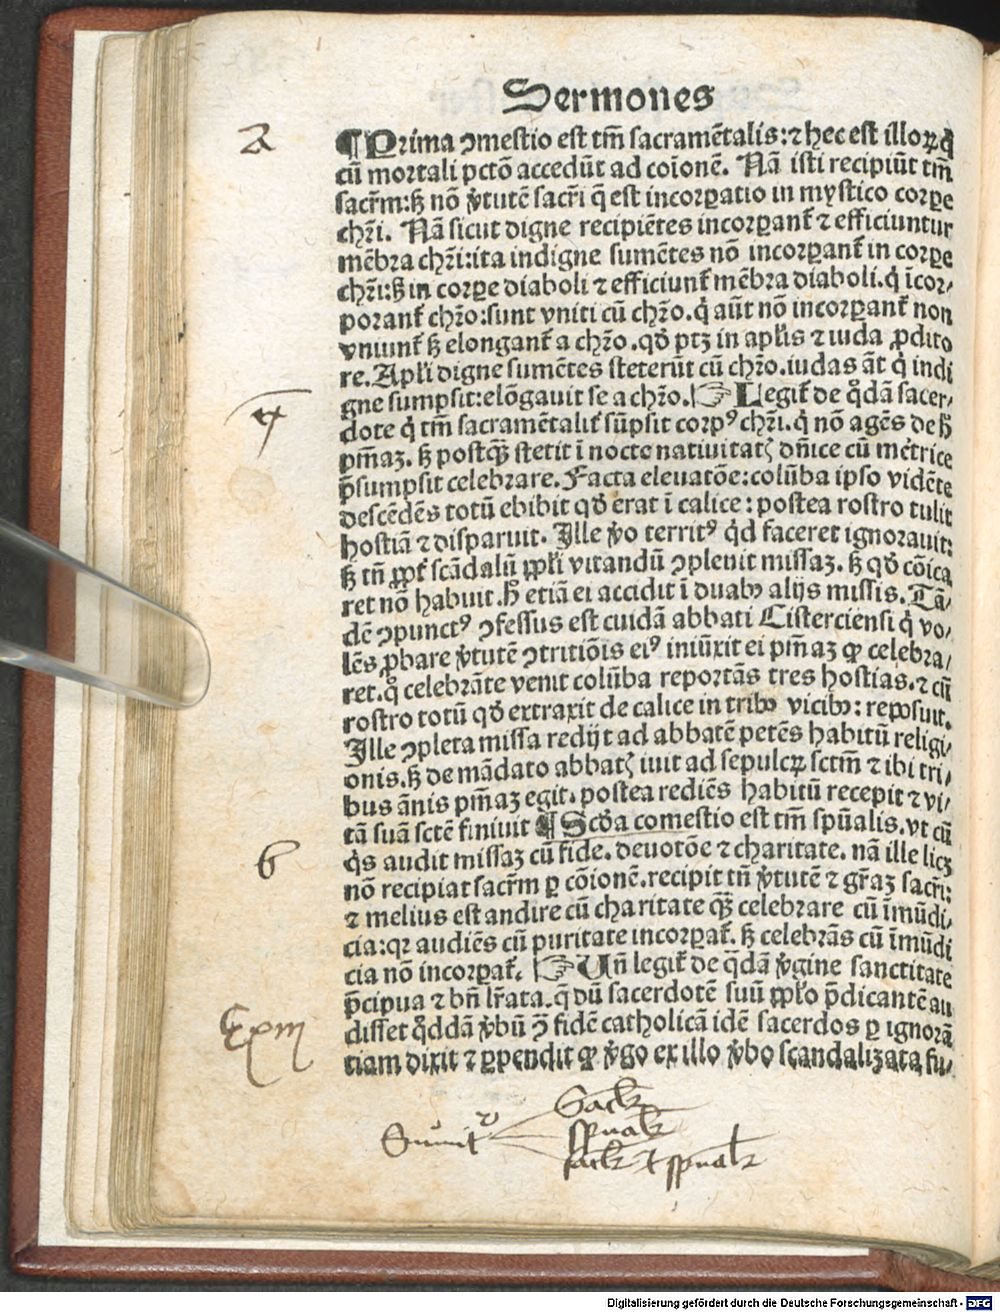 Sermones
a
¶Prima ↄmestio est tm̄ sacramētalis: ⁊ hec est illoꝝ q̇
cū mortali pctō accedūt ad coīonē. Nā isti recipiūt tm̄
sacr̄m: sꝫ nō v̄tutē sacr̄i q̄ est incorꝑatio in mystico corꝑe
chr̄i. Nā sicut digne recipiētes incorꝑant᷑ ⁊ efficiuntur
mēbra chr̄i: ita indigne sumētes nō incorꝑant᷑ in corꝑe
chr̄i: sꝫ in corꝑe diaboli ⁊ efficiunt᷑ mēbra diaboli. q̇ īcor⸗
porant᷑ chr̄o: sunt vniti cū chr̄o. q̇ aūt nō incorꝑant᷑ non
vniunt᷑ sꝫ elongant᷑ a chr̄o. qđ ptꝫ in apl̄is ⁊ iuda ꝓdito
re. Apl̄i digne sumētes steterūt cū chr̄o. iudas āt q̇ indi
gne sumpsit: elōgauit se a chr̄o. ☞ Legit᷑ de qͦdā sacer⸗
dote q̇ tm̄ sacramētalit᷑ sūpsit corpꝰ chr̄i. q̇ nō agēs de hͦ
pn̄iaꝫ. sꝫ postqꝫ̄ stetit ī nocte natiuitatꝭ dn̄ice cū m̄etrice
p̄sumpsit celebrare. Facta eleuatōe: colūba ipso vidēte
descēdēs totū ebibit qđ erat ī calice: postea rostro tulit
hostiā ⁊ disparuit. Ille v̄o territꝰ qͥd faceret ignorauit:
sꝫ tn̄ ꝓpt᷑ scādalū ppl̄i vitandū ↄpleuit missaꝫ. sꝫ qđ cōica
ret nō habuit. hͦ etiā ei accidit ī duabꝰ alijs missis. Tā⸗
dē ↄpunctꝰ ↄfessus est cuidā abbati Cisterciensi q̇ vo⸗
lēs ꝓbare v̄tutē ↄtritiōis eiꝰ iniūxit ei pn̄iaꝫ ꝙ celebra⸗
ret. qͦ celebrāte venit colūba reportās tres hostias. ⁊ cū
rostro totū qđ extraxit de calice in tribꝰ vicibꝰ: reposuit.
Ille ↄpleta missa redijt ad abbatē petēs habitū religi⸗
onis. sꝫ de mādato abbatꝭ iuit ad sepulcꝝ sctm̄ ⁊ ibi tri⸗
bus ānis pn̄iaꝫ egit. postea rediēs habitū recepit ⁊ vi⸗
tā suā sctē finiuit ¶Scđa comestio est tm̄ spūalis. vt cū
b
qͥs audit missaꝫ cū fide. deuotōe ⁊ charitate. nā ille licꝫ
nō recipiat sacr̄m ꝑ cōionē. recipit tn̄ v̄tutē ⁊ gr̄aꝫ sacr̄i:
⁊ melius est audire cū charitate qꝫ̄ celebrare cū īmūdi⸗
cia: qꝛ audiēs cū puritate incorꝑat᷑. sꝫ celebrās cū īmūdi
cia nō incorꝑat᷑. ☞ Vn̄ legit᷑ de q̄dā v̄gine sanctitate
p̄cipua ⁊ bn̄ lr̄ata. q̄ dū sacerdotē suū ppl̄o p̄dicantē au
disset qͦddā v̄bū ↄ̄ fidē catholicā idē sacerdos ꝑ ignorā
Exm
tiam dixit ⁊ ꝑpendit ꝙ v̄go ex illo v̄bo scandalizata fu⸗
Sumit᷑
Sacl̄r
spual̄r
sacl̄r ⁊ spual̄r
Digitalisierung gefördert durch die Deutsche Forschungsgemeinschaft - DFG